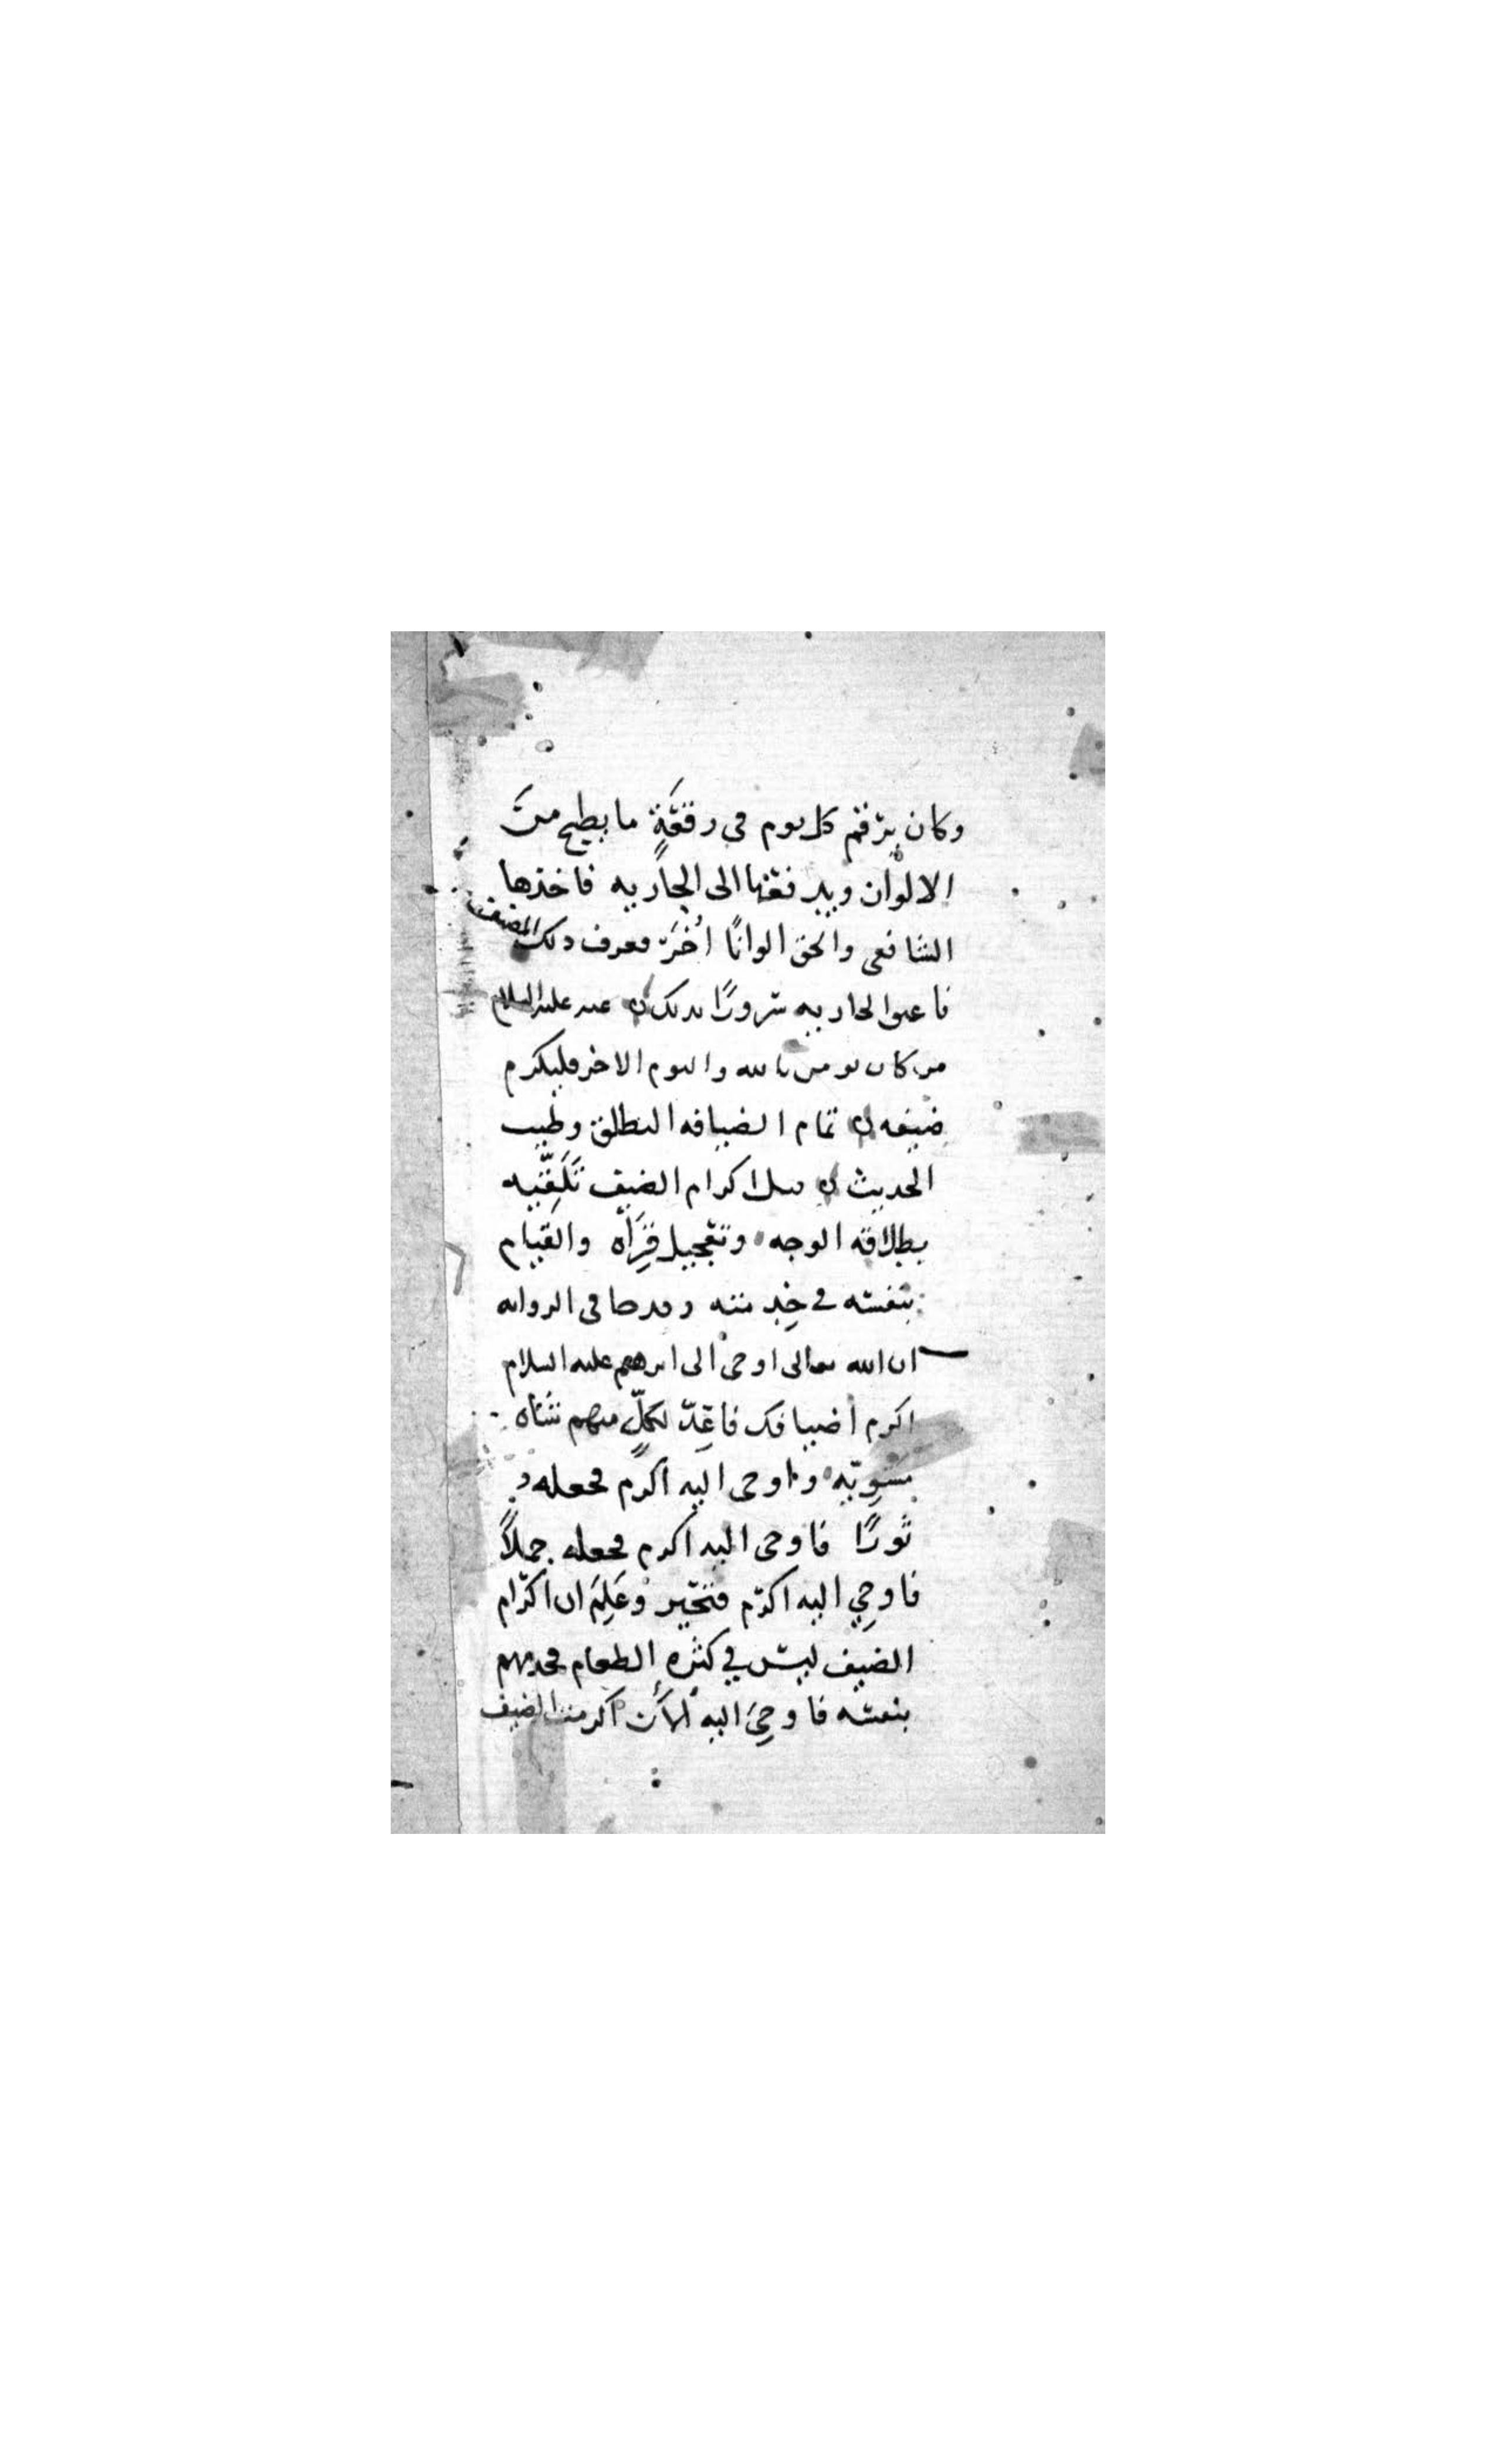 وكان يرقم كل يوم في رقعةٍ ما يطبخ من
الالوان ويدفعها الى الجاريه فاخذها
الشافعي والحق الوانًا أُخَر فعرف ذلك المضيف
فاعتق الجاريه سرورًا بذلك ن عنه عليه السلام
من كان يومن بالله واليوم الاخر فليكرم
ضيفه ن تمام الضيافه الطلاقه وطيب
الحديث ن اكرام الضيف تَلَقِّيه
بطلاقه الوجه وتعجيل قِرَاه والقيام
بنفسه في خِدمته وقد جا في الروايه
ان الله تعالى اوحى الى ابرهيم عليه السلام
اكرم أضيافك فاعدّ لكلٍّ منهم شاه
مشويّه واوحى اليه اكرم فجعله
ثورًا فاوحى اليه اكرم فجعله جملاً
فاوحي اليه اكرم فتحيّر وعَلِمَ ان اكرام
الضيف ليس في كثره الطعام فخدمهم
بنفسه فاوحيَ اليه الأن اكرمت الضيف